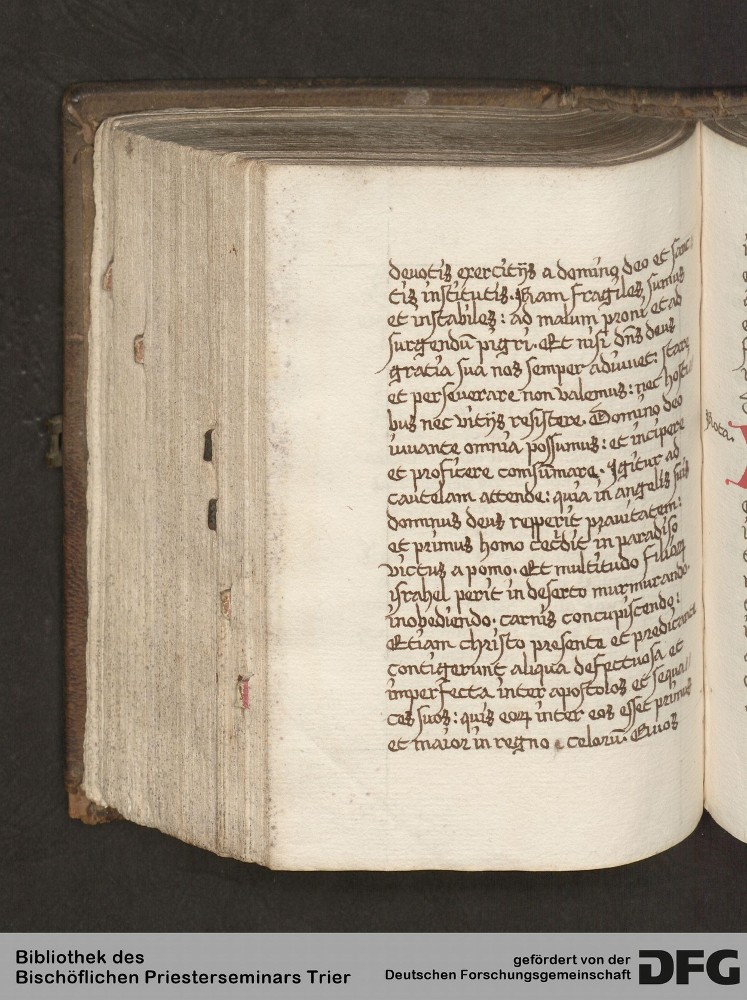 devotis exercitijs a domino deo et sanc
tis institutis. Nam fragiles sumus
et instabiles: ad malum proni et ad
surgendū pigri. Et nisi dn̄s deus
gratia sua nos semper adiuvet: stare
et perseverare non valemus: nec hosti
bus nec vitijs resistere. Domino deo
iuvante omnia possumus: et incipere
et proficere consūmare. Igitur ad
cautelam attende: quia in angelis suis
dominus deus repperit pravitatem:
et primus homo cecidit in paradiso
victus a pomo. Et multitudo filioꝝ
israhel perit in deserto murmurando.
inobediendo. carnis concupiscendo:
Etiam christo presente et predicante
contigerunt aliqua defectuosa et
imperfecta inter apostolos et sequa
ces suos: quis eoꝝ inter eos esset primus
et maior in regno celorū. Quos
Nota.
Bibliothek des
Bischöflichen Priesterseminars Trier
gefördert von der
Deutschen Forschungsgemeinschaft
DFG